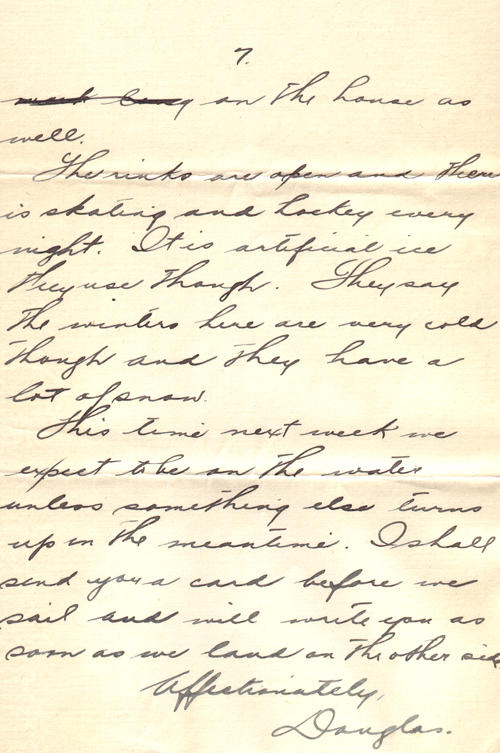 7.
on the house as
well.
The rinks are open and there
is skating and hockey every
night. It is artificial ice
they use though. They say
the winters here are very cold
though and they have a
lot of snow.
This time next week we
expect to be on the water
unless something else turns
up in the meantime. I shall
send you a card before we
sail and will write you as
soon as we land on the other side
Affectionately,
Douglas.